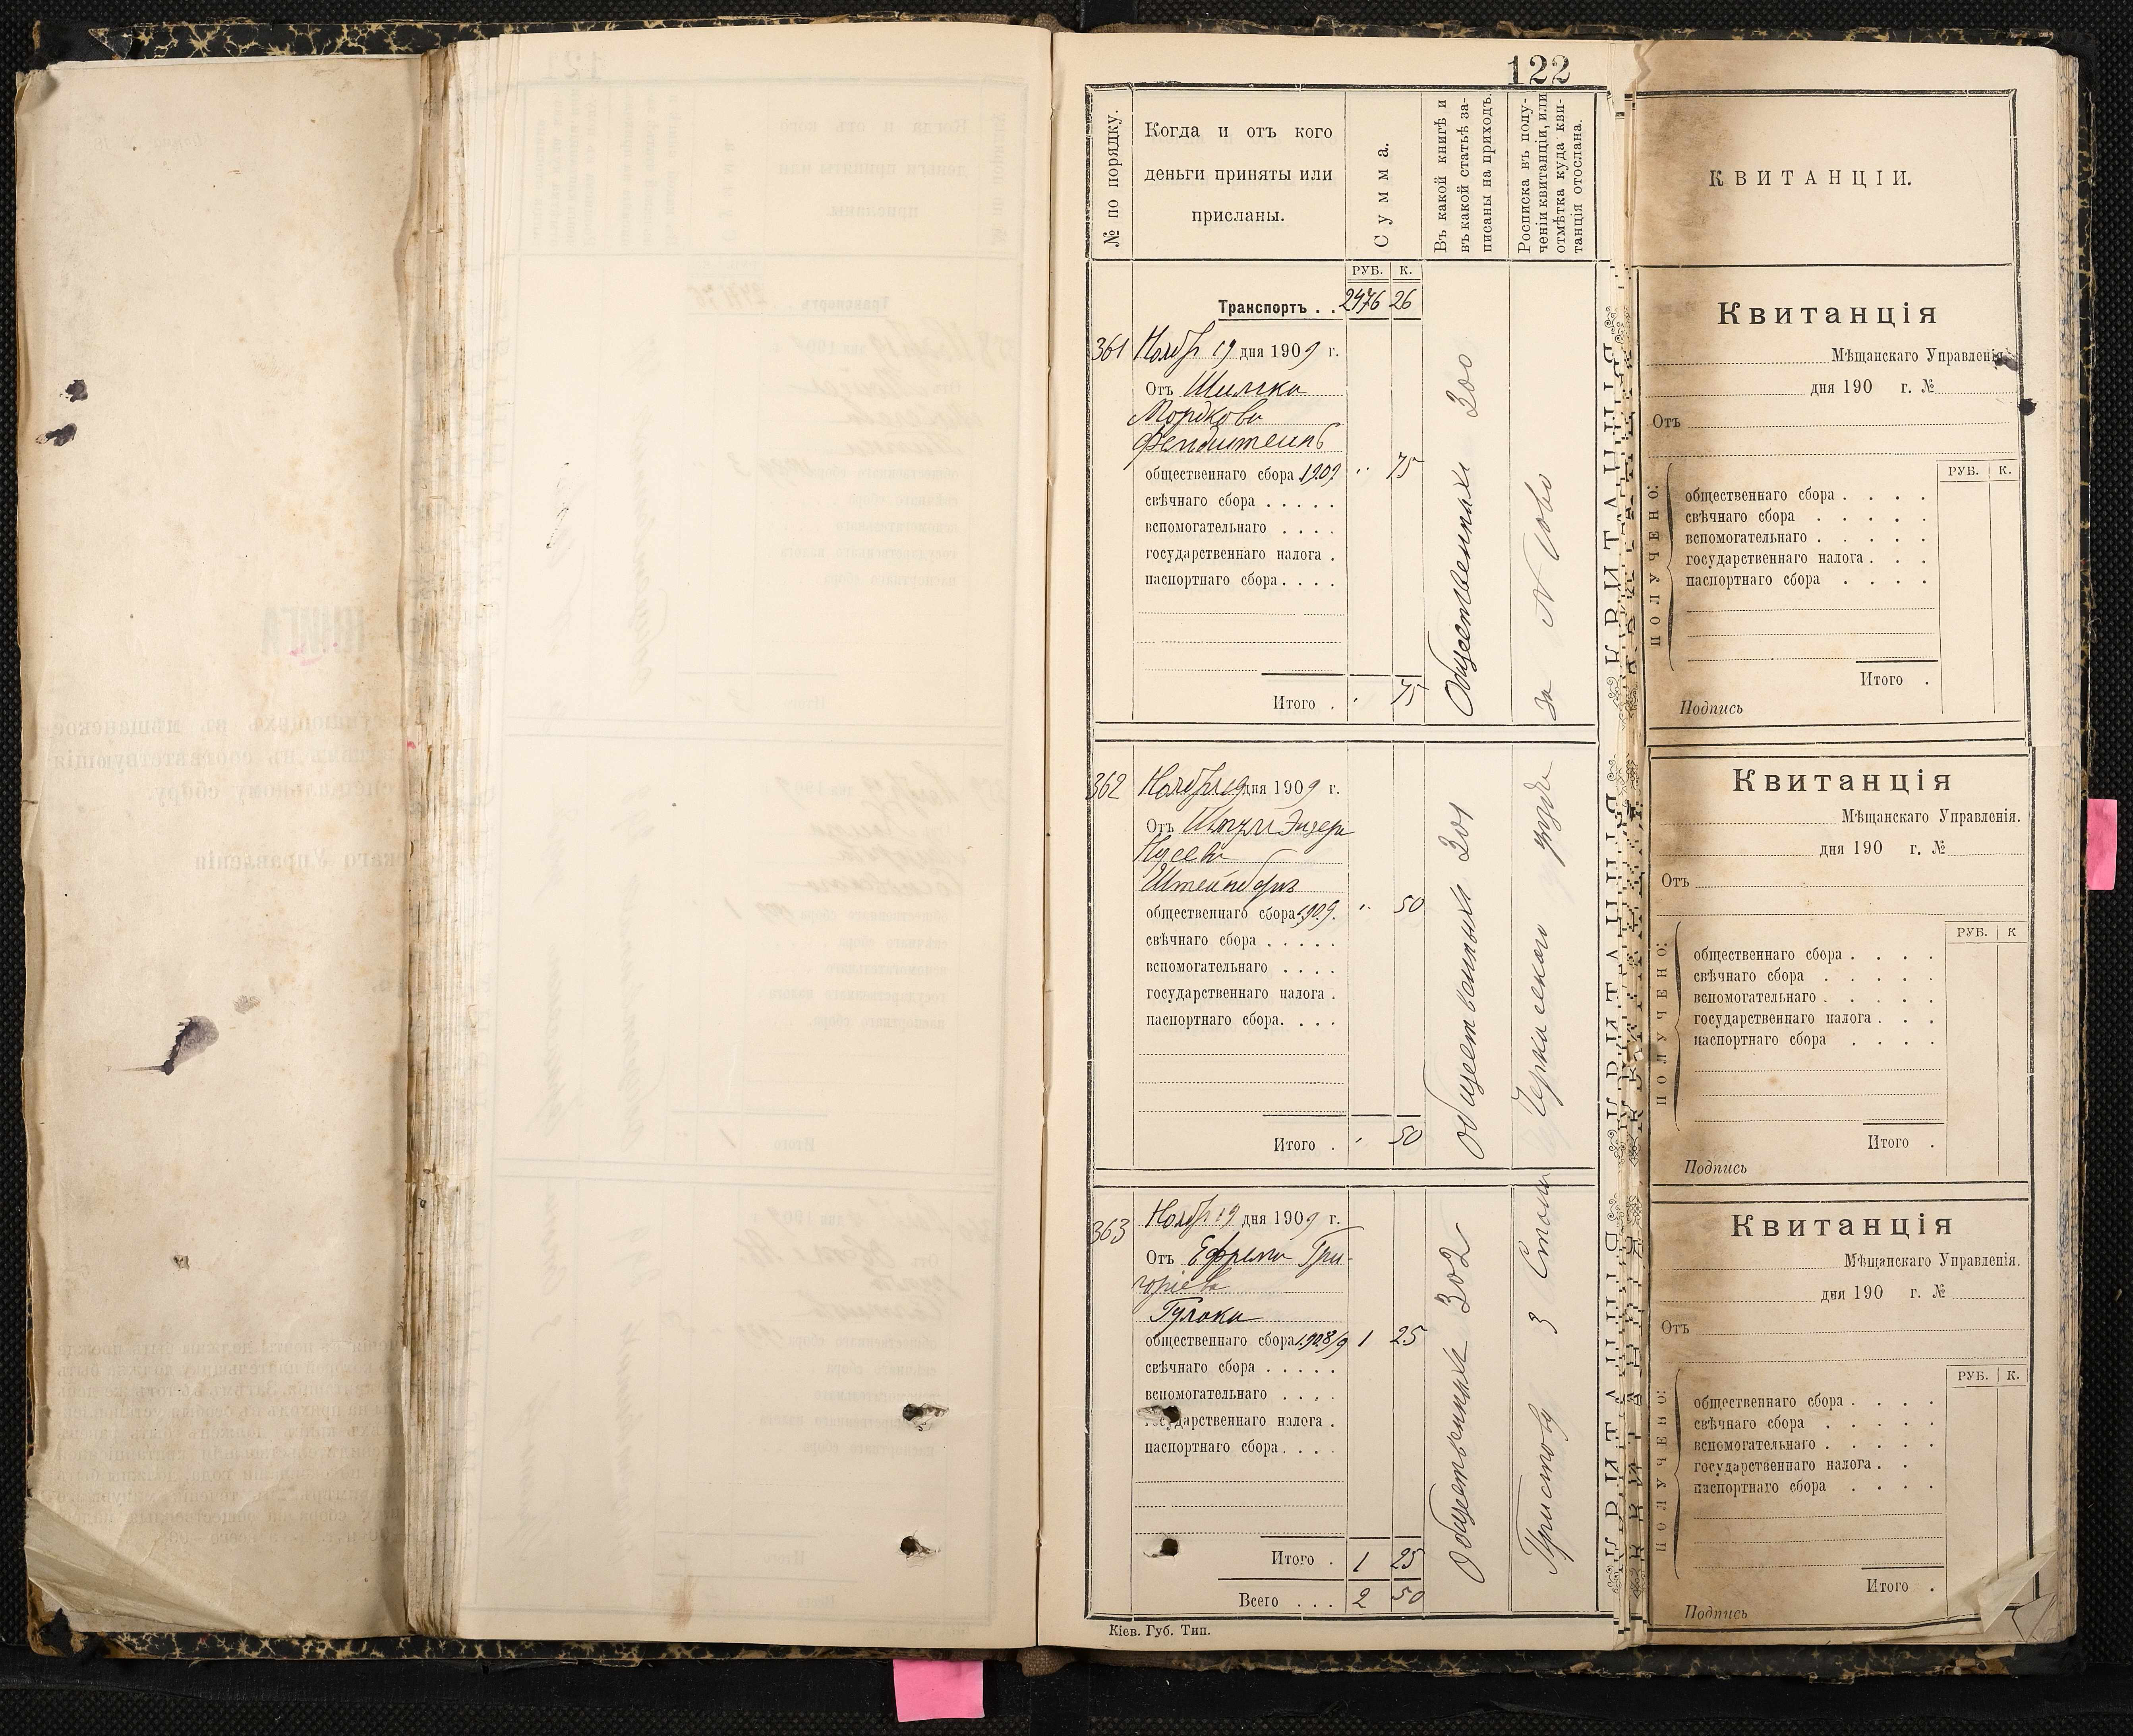 122
№ по порядку.
Когда и отъ кого
деньги приняты или
присланы.
Сумма.
Въ какой книгѣ и
въ какой статьѣ за-
писаны на приходъ.
Росписка въ полу-
ченіи квитанціи, или
отмѣтка куда кви-
танція отослана.
РУБ. К.
Транспортъ . . 2476 26
361 Ноябр 19 дня 1909 г.
Отъ Шимка
Мордкова
общественнаго сбора 1909 " 75
свѣчнаго сбора . . . . .
вспомогательнаго . . . .
государственнаго налога .
паспортнаго сбора . . . .
Итого . " 75
Общественныхъ 300
за
362 Ноябр 19 дня 1909 г.
Отъ
Штейнберг
общественнаго сбора 1909. " 50
свѣчнаго сбора . . . . .
вспомогательнаго . . . .
государственнаго налога .
паспортнаго сбора. . . .
Итого . " 50
общественныхъ 301
Черкасскаго уезда
363 Ноябр 19 дня 1909 г.
Отъ Ефрема Гри-
горіева
Гулака
общественнаго сбора 1908/9 1 25
свѣчнаго сбора . . . . .
вспомогательнаго . . . .
государственнаго налога .
паспортнаго сбора . . . .
Итого . 1 25
Всего . . . 2 50
Общественныхъ 302
Приставу 3 Стана
Кіев. Губ. Тип.
КВИТАНЦІИ.
Квитанція
Мѣщанскаго Управленія
дня 190 г. №
Отъ
РУБ. К.
ПОЛУЧЕНО:
общественнаго сбора . . . .
свѣчнаго сбора . . . . .
вспомогательнаго . . . . .
государственнаго налога . . .
паспортнаго сбора . . . .
Итого .
Подпись
Квитанція
Мѣщанскаго Управленія.
дня 190 г. №
Отъ
РУБ. К
ПОЛУЧЕНО:
общественнаго сбора . . . .
свѣчнаго сбора . . . . .
вспомогательнаго . . . . .
государственнаго налога . . .
паспортнаго сбора . . . .
Итого .
Подпись
Квитанція
Мѣщанскаго Управленія.
дня 190 г. №
Отъ
РУБ. К.
ПОЛУЧЕНО:
общественнаго сбора . . . .
свѣчнаго сбора . . . . .
вспомогательнаго . . . . .
государственнаго налога . .
паспортнаго сбора . . . .
Итого .
Подпись